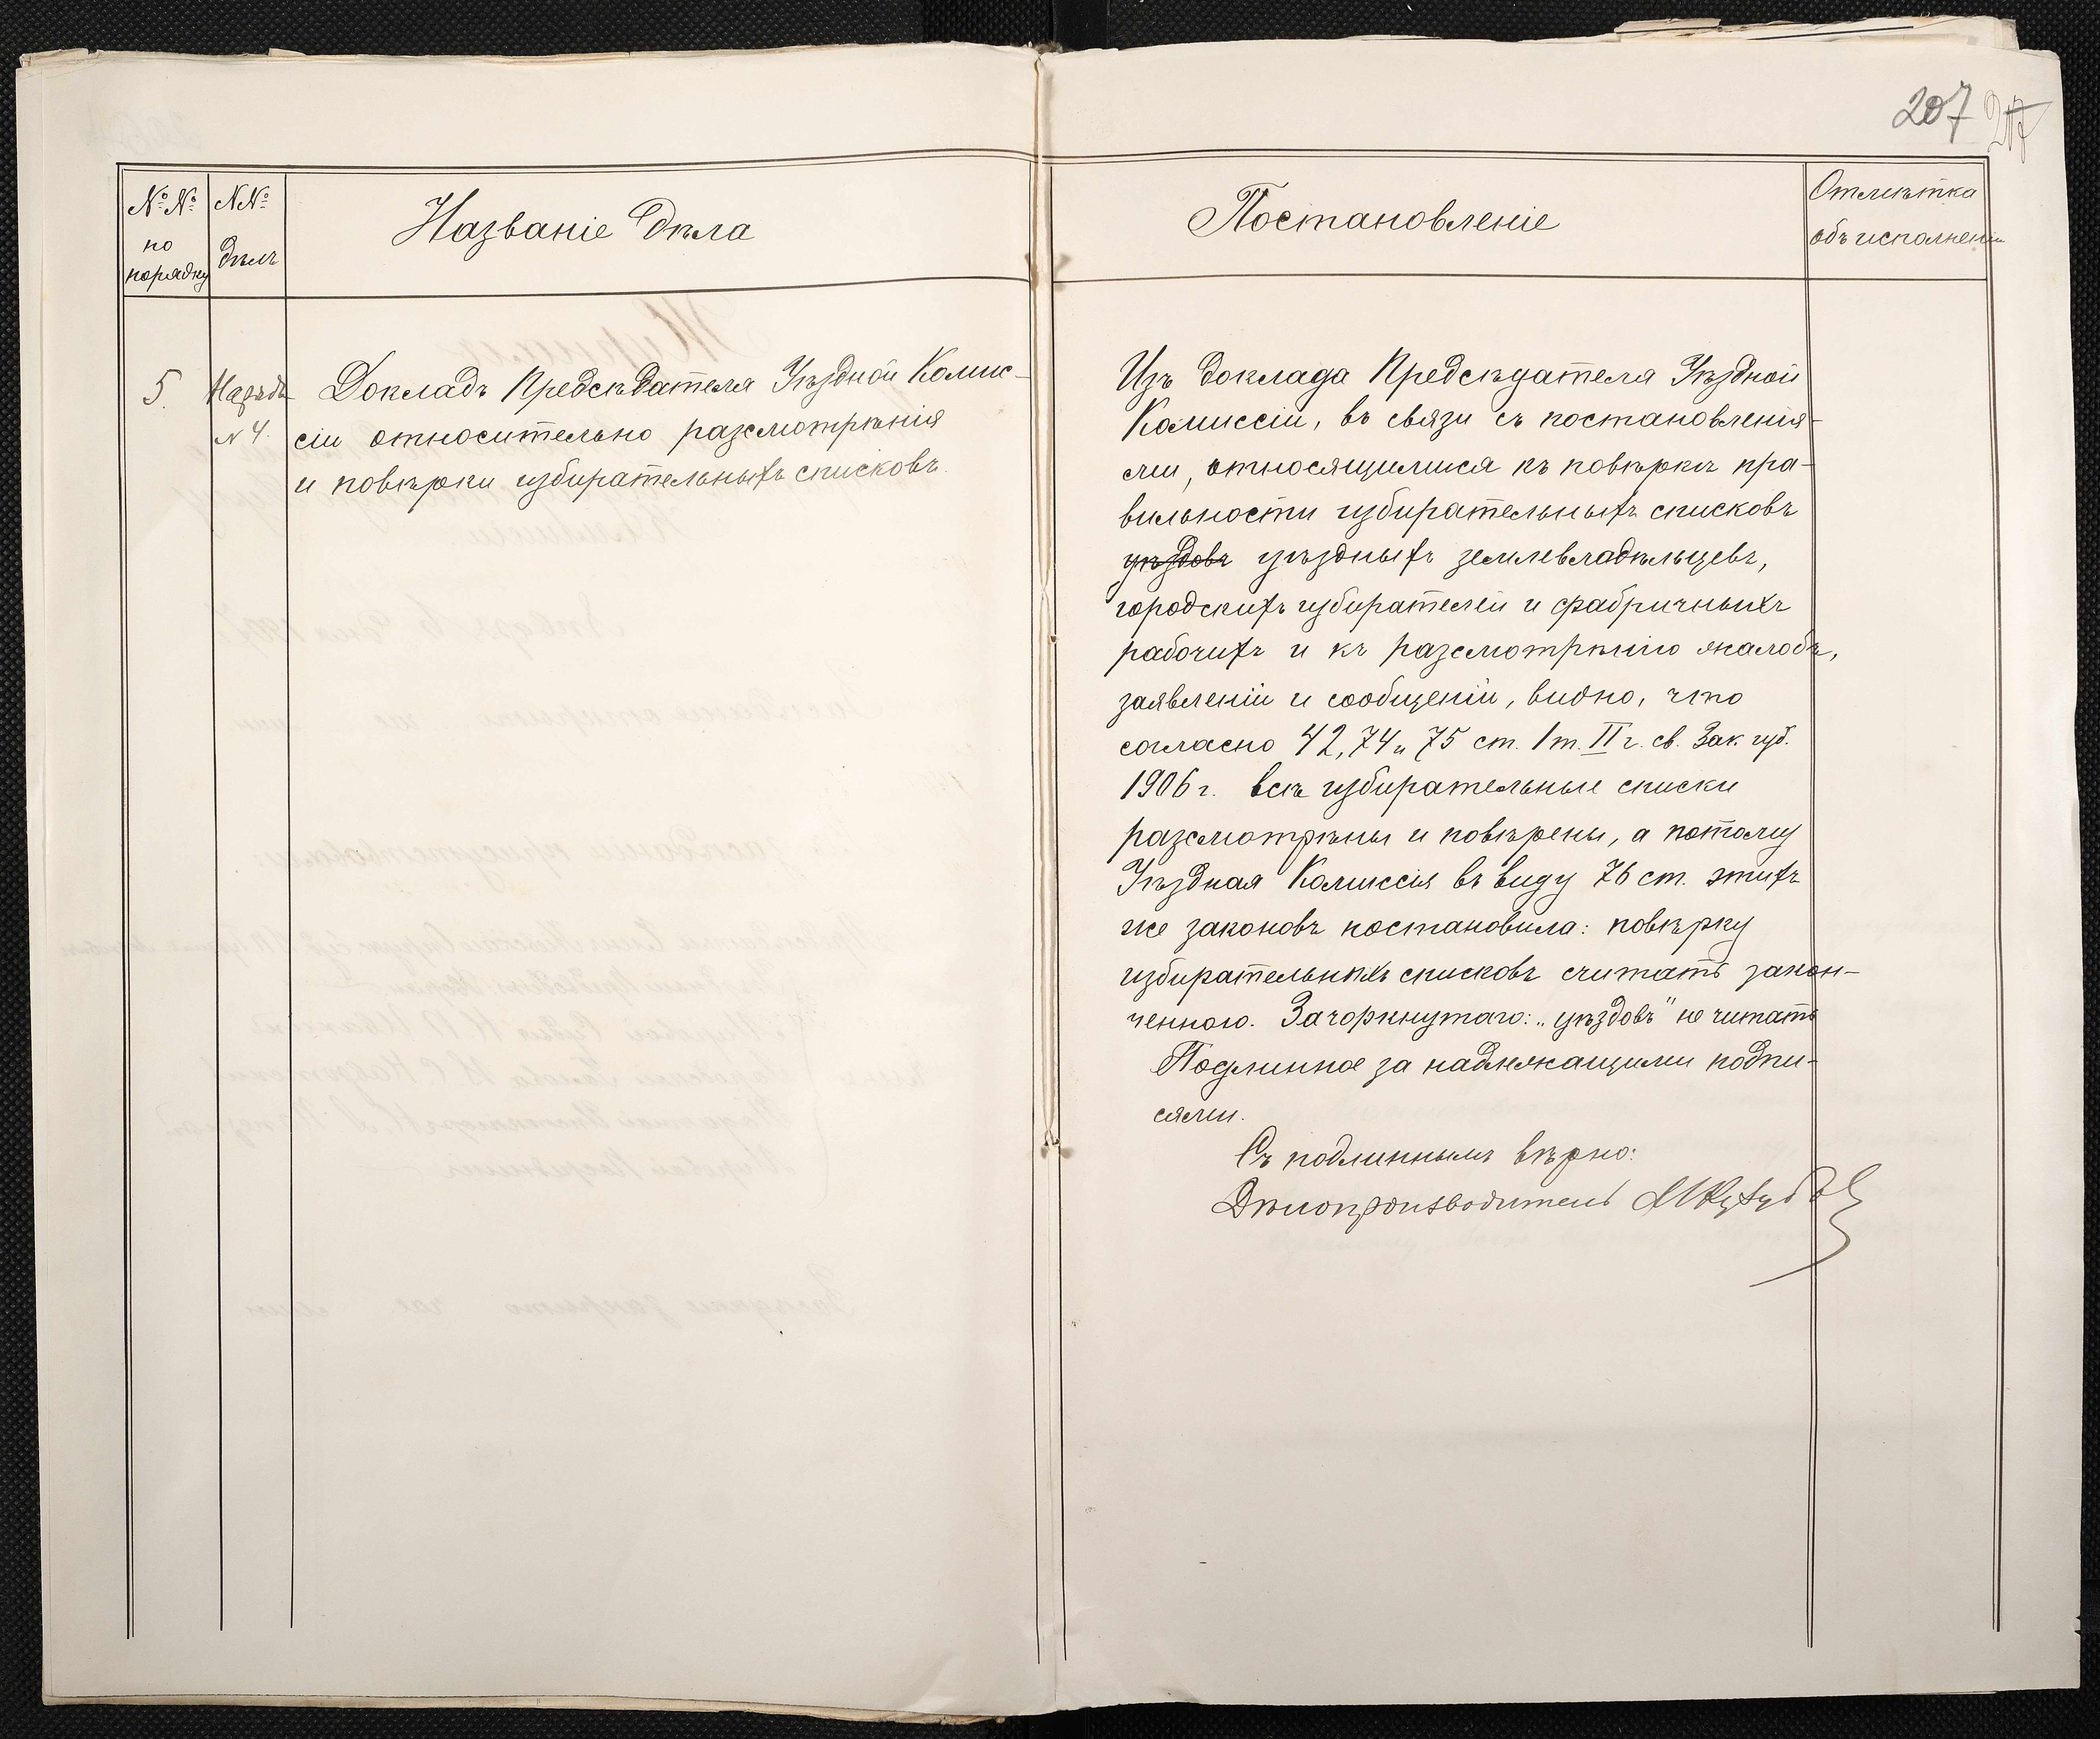 207 217
№ №
по
порядку
№№
дѣлъ
Названіе дѣла
Постановленіе
Отмѣтка
объ исполненіи
5.
Нарядъ
№ 4.
Докладъ Предсѣдателя Уѣздной Комис-
сіи относительно разсмотрѣнія
и повѣрки избирательныхъ списковъ.
Изъ доклада Предсѣдателя Уѣздной
Комиссіи, въ связи съ постановленія-
ми, относящимися къ повѣркѣ пра-
вильности избирательныхъ списковъ
уѣздовъ уѣздныхъ землевладѣльцевъ,
городскихъ избирателей и фабричныхъ
рабочихъ и къ разсмотрѣнію жалобъ,
заявленій и сообщеній, видно, что
согласно 42, 74 и 75 ст. 1 т. II ч. св. Зак. изд.
1906 г. всѣ избирательные списки
разсмотрѣны и повѣрены, а потому
Уѣздная Комиссія въ виду 76 ст. этихъ
же законовъ постановила: повѣрку
избирательныхъ списковъ считать закон-
ченною. Зачоркнутаго: „уѣздовъ" не читать
Подлинное за надлежащими подпи-
сями.
Съ подлиннымъ вѣрно:
Дѣлопроизводитель